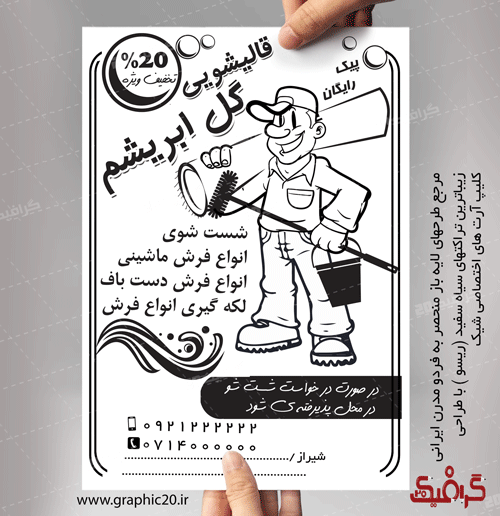 %20
تخفیف ویژه
قالیشویی
گل ابریشم
پیک
رایگان
شست شوی
انواع فرش ماشینی
انواع فرش دست باف
لکه گیری انواع فرش
در صورت در خواست شست شو
در محل پذیرفته ی شود
۰۹۲۱۲۲۲۲۲۲
۰۷۱۴۰۰۰۰۰۰
شیراز /
www.graphic20.ir
مرجع طرحهای لایه باز منحصر به فردو مدرن ایرانی
زیباترین تراکتهای سیاه سفید (ریسو) با طراحی
کلیپ آرت های اختصاصی شیک
گرافیک
۲۰